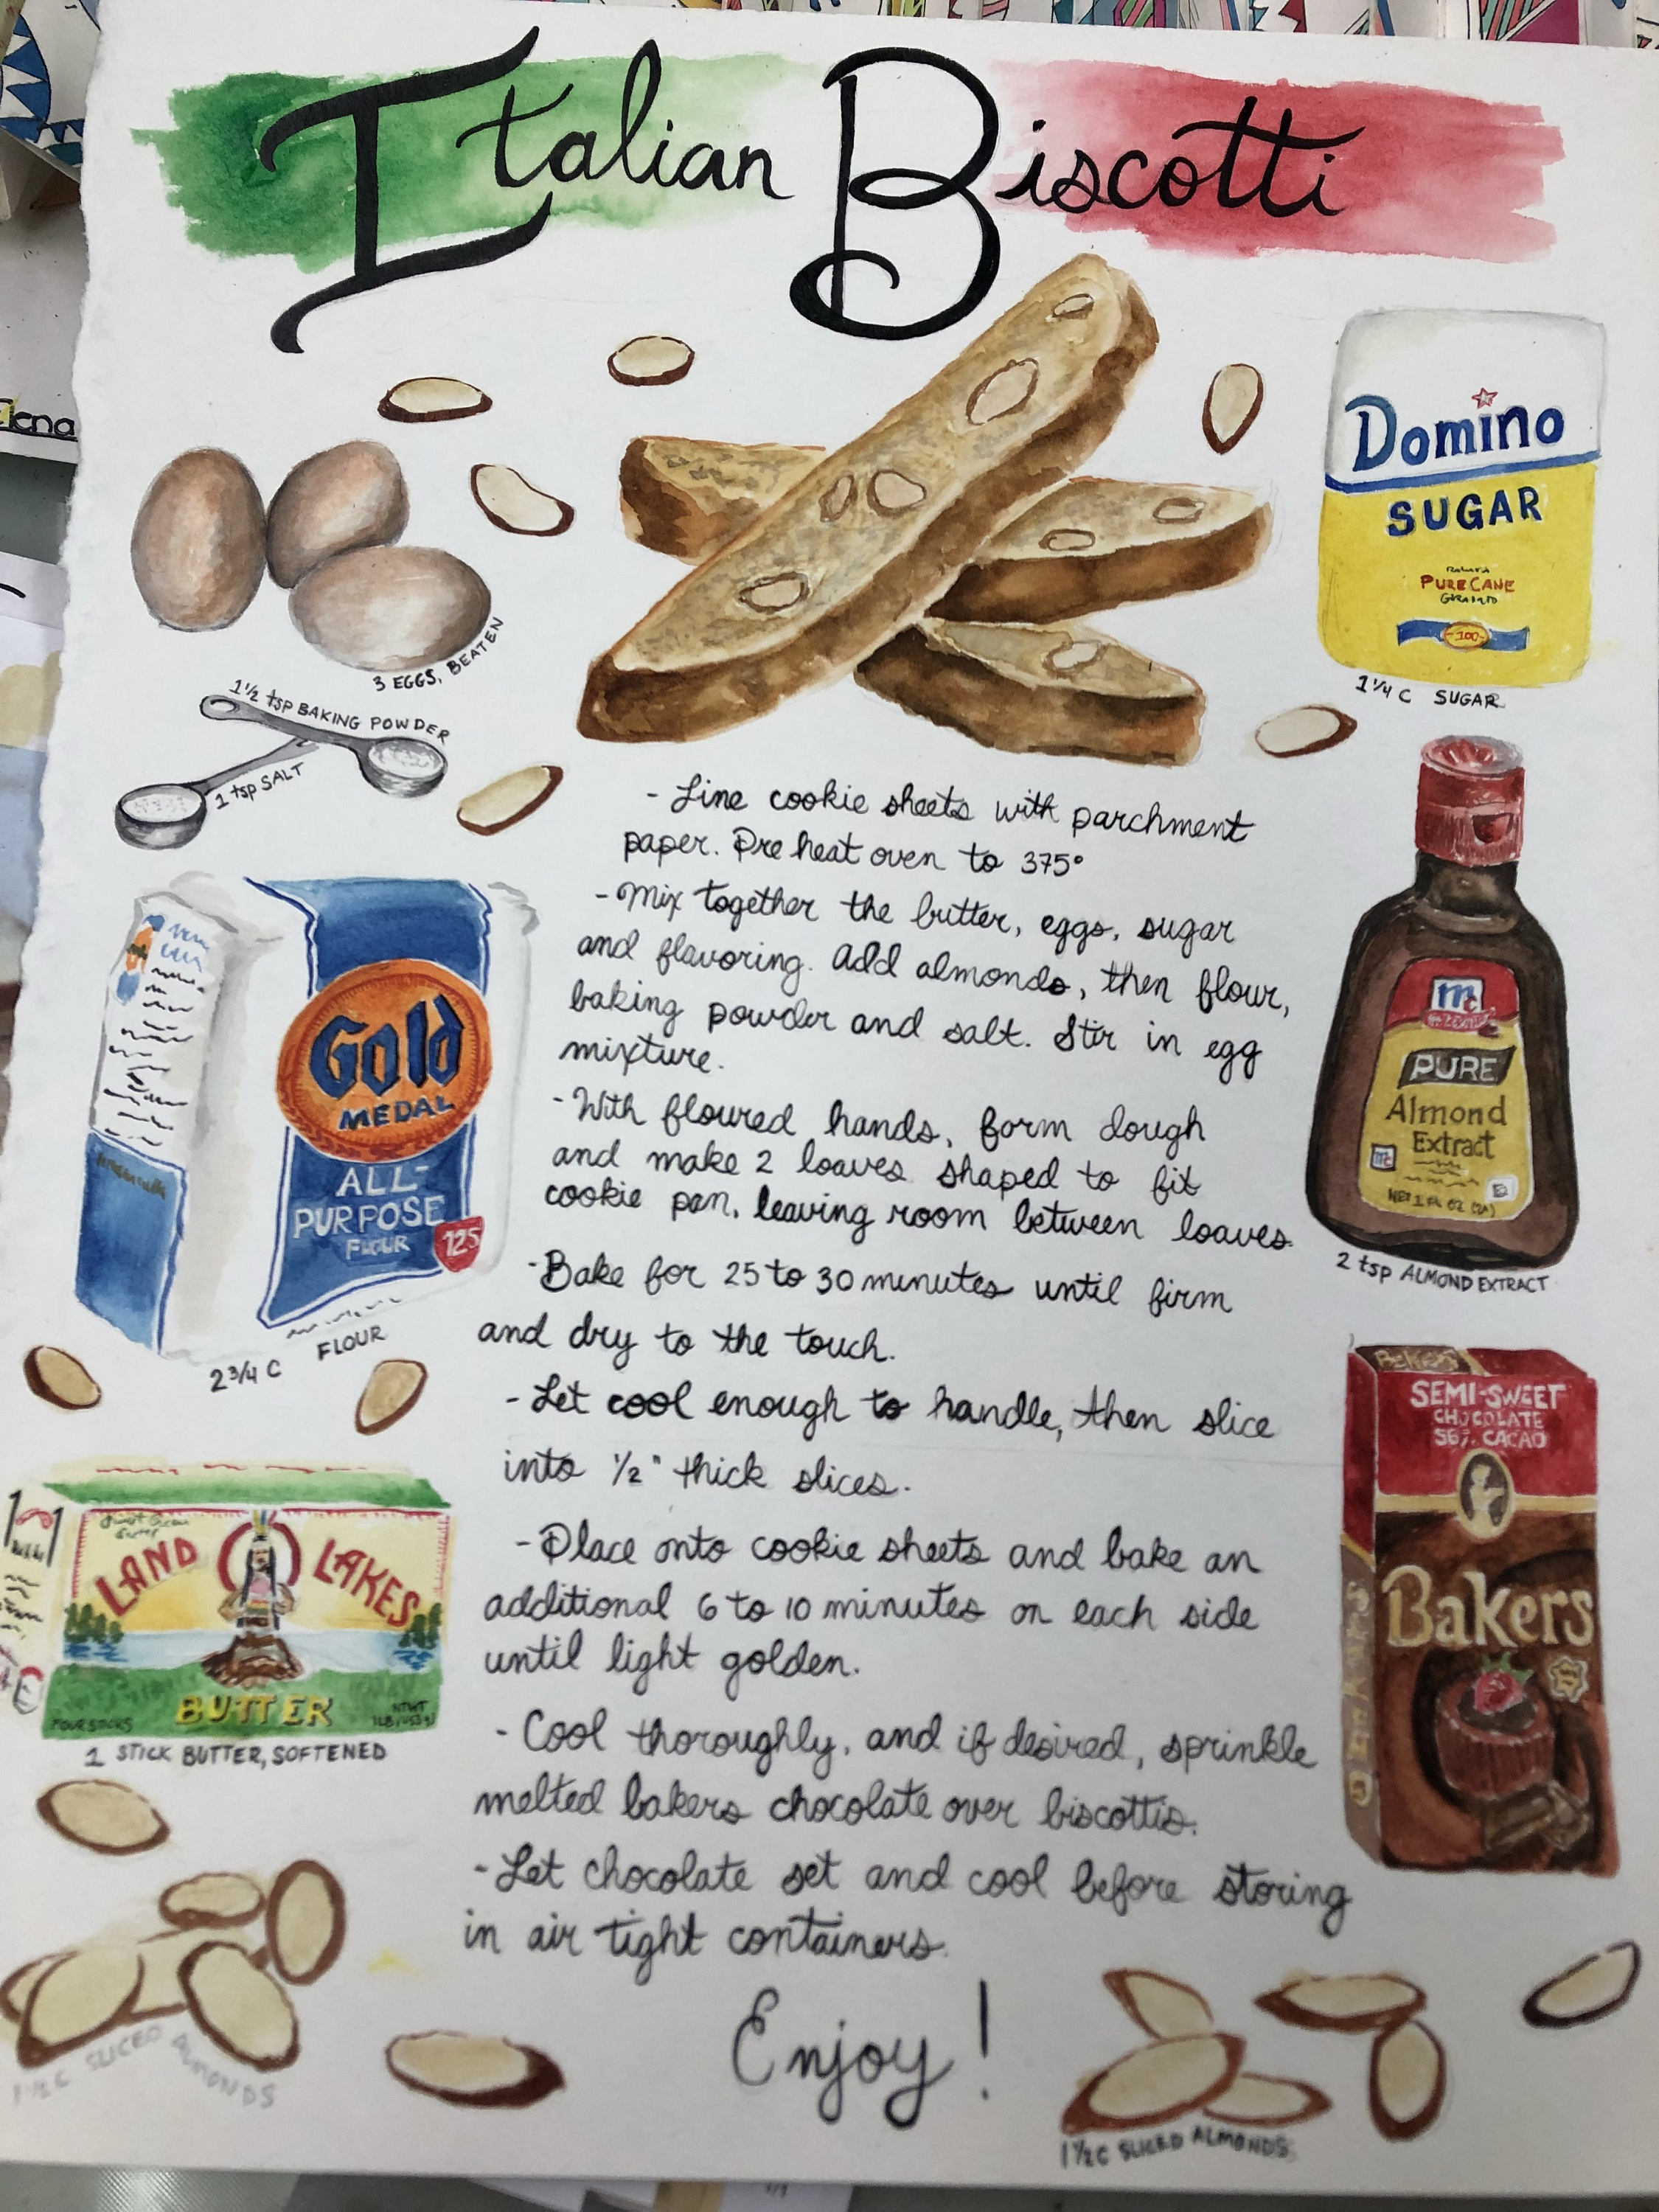 Italian Biscotti
Elena
3 EGGS, BEATEN
1 1/2 tsp BAKING POWDER
1 tsp SALT
Domino
SUGAR
PURE CANE
100
1 1/4 C SUGAR
- Line cookie sheets with parchment
paper. Pre heat oven to 375°
- Mix together the butter, eggs, sugar
and flavoring. Add almonds, then flour,
baking powder and salt. Stir in egg
mixture.
- With floured hands, form dough
and make 2 loaves shaped to fit
cookie pan, leaving room between loaves.
- Bake for 25 to 30 minutes until firm
and dry to the touch.
- Let cool enough to handle, then slice
into 1/2" thick slices.
- Place onto cookie sheets and bake an
additional 6 to 10 minutes on each side
until light golden.
- Cool thoroughly, and if desired, sprinkle
melted bakers chocolate over biscottis.
- Let chocolate set and cool before storing
in air tight containers.
Enjoy!
Gold
MEDAL
ALL-
PURPOSE
FLOUR
125
2 3/4 C FLOUR
LAND LAKES
BUTTER
FOUR STICKS
1 STICK BUTTER, SOFTENED
1 1/2 C SLICED ALMONDS
Mc
PURE
Almond
Extract
Mc
NET 1 FL OZ
2 tsp ALMOND EXTRACT
Bakers
SEMI-SWEET
CHOCOLATE
56% CACAO
Bakers
BAKERS
1 1/2 C SLICED ALMONDS